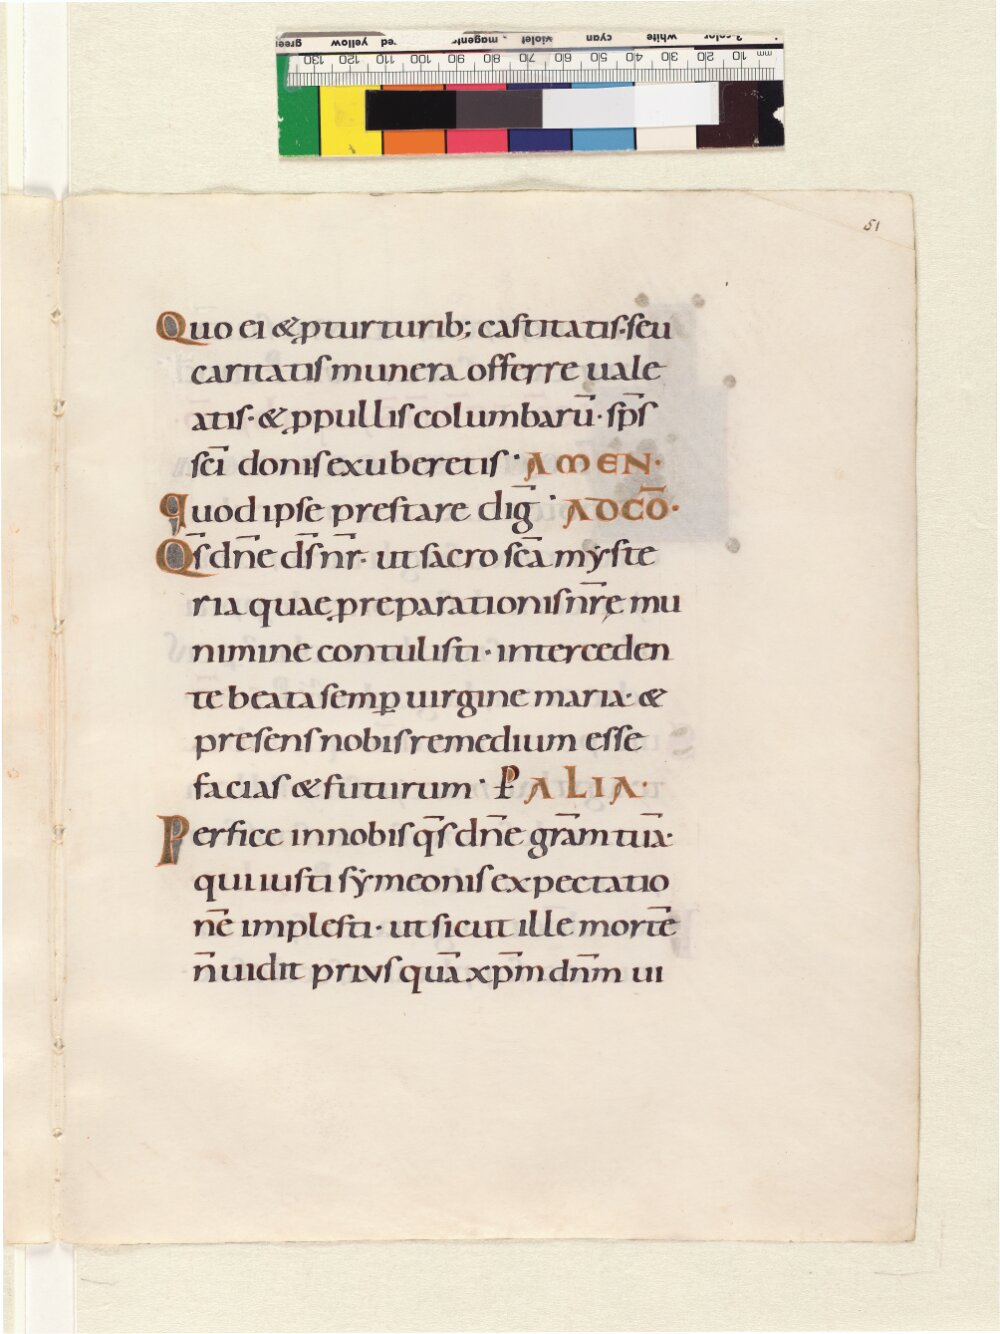 green yellow red magenta violet cyan white 3-color
130 120 110 100 90 80 70 60 50 40 30 20 10 mm
51
Quo ei & ꝑ turturib; castitatis· seu
caritatis munera offerre uale
atis· & ꝓ pullis columbarū· sp̄s
sc̄i donis exuberetis· AMEN·
quod ipse prestare diḡ· AD CŌ·
Q̄s dn̄e ds̄ nr̄· ut sacro sc̄a mẏste
ria quae preparationis nr̄ę mu
nimine contulisti· interceden
te beata semꝑ uirgine maria· &
presens nobis remedium esse
facias & futurum· Ꝑ ALIA·
Perfice in nobis q̄s dn̄e grām tuā·
qui iusti sẏmeonis expectatio
nē implesti· ut sicut ille mortē
n̄ uidit prius quā xp̄m dn̄m ui